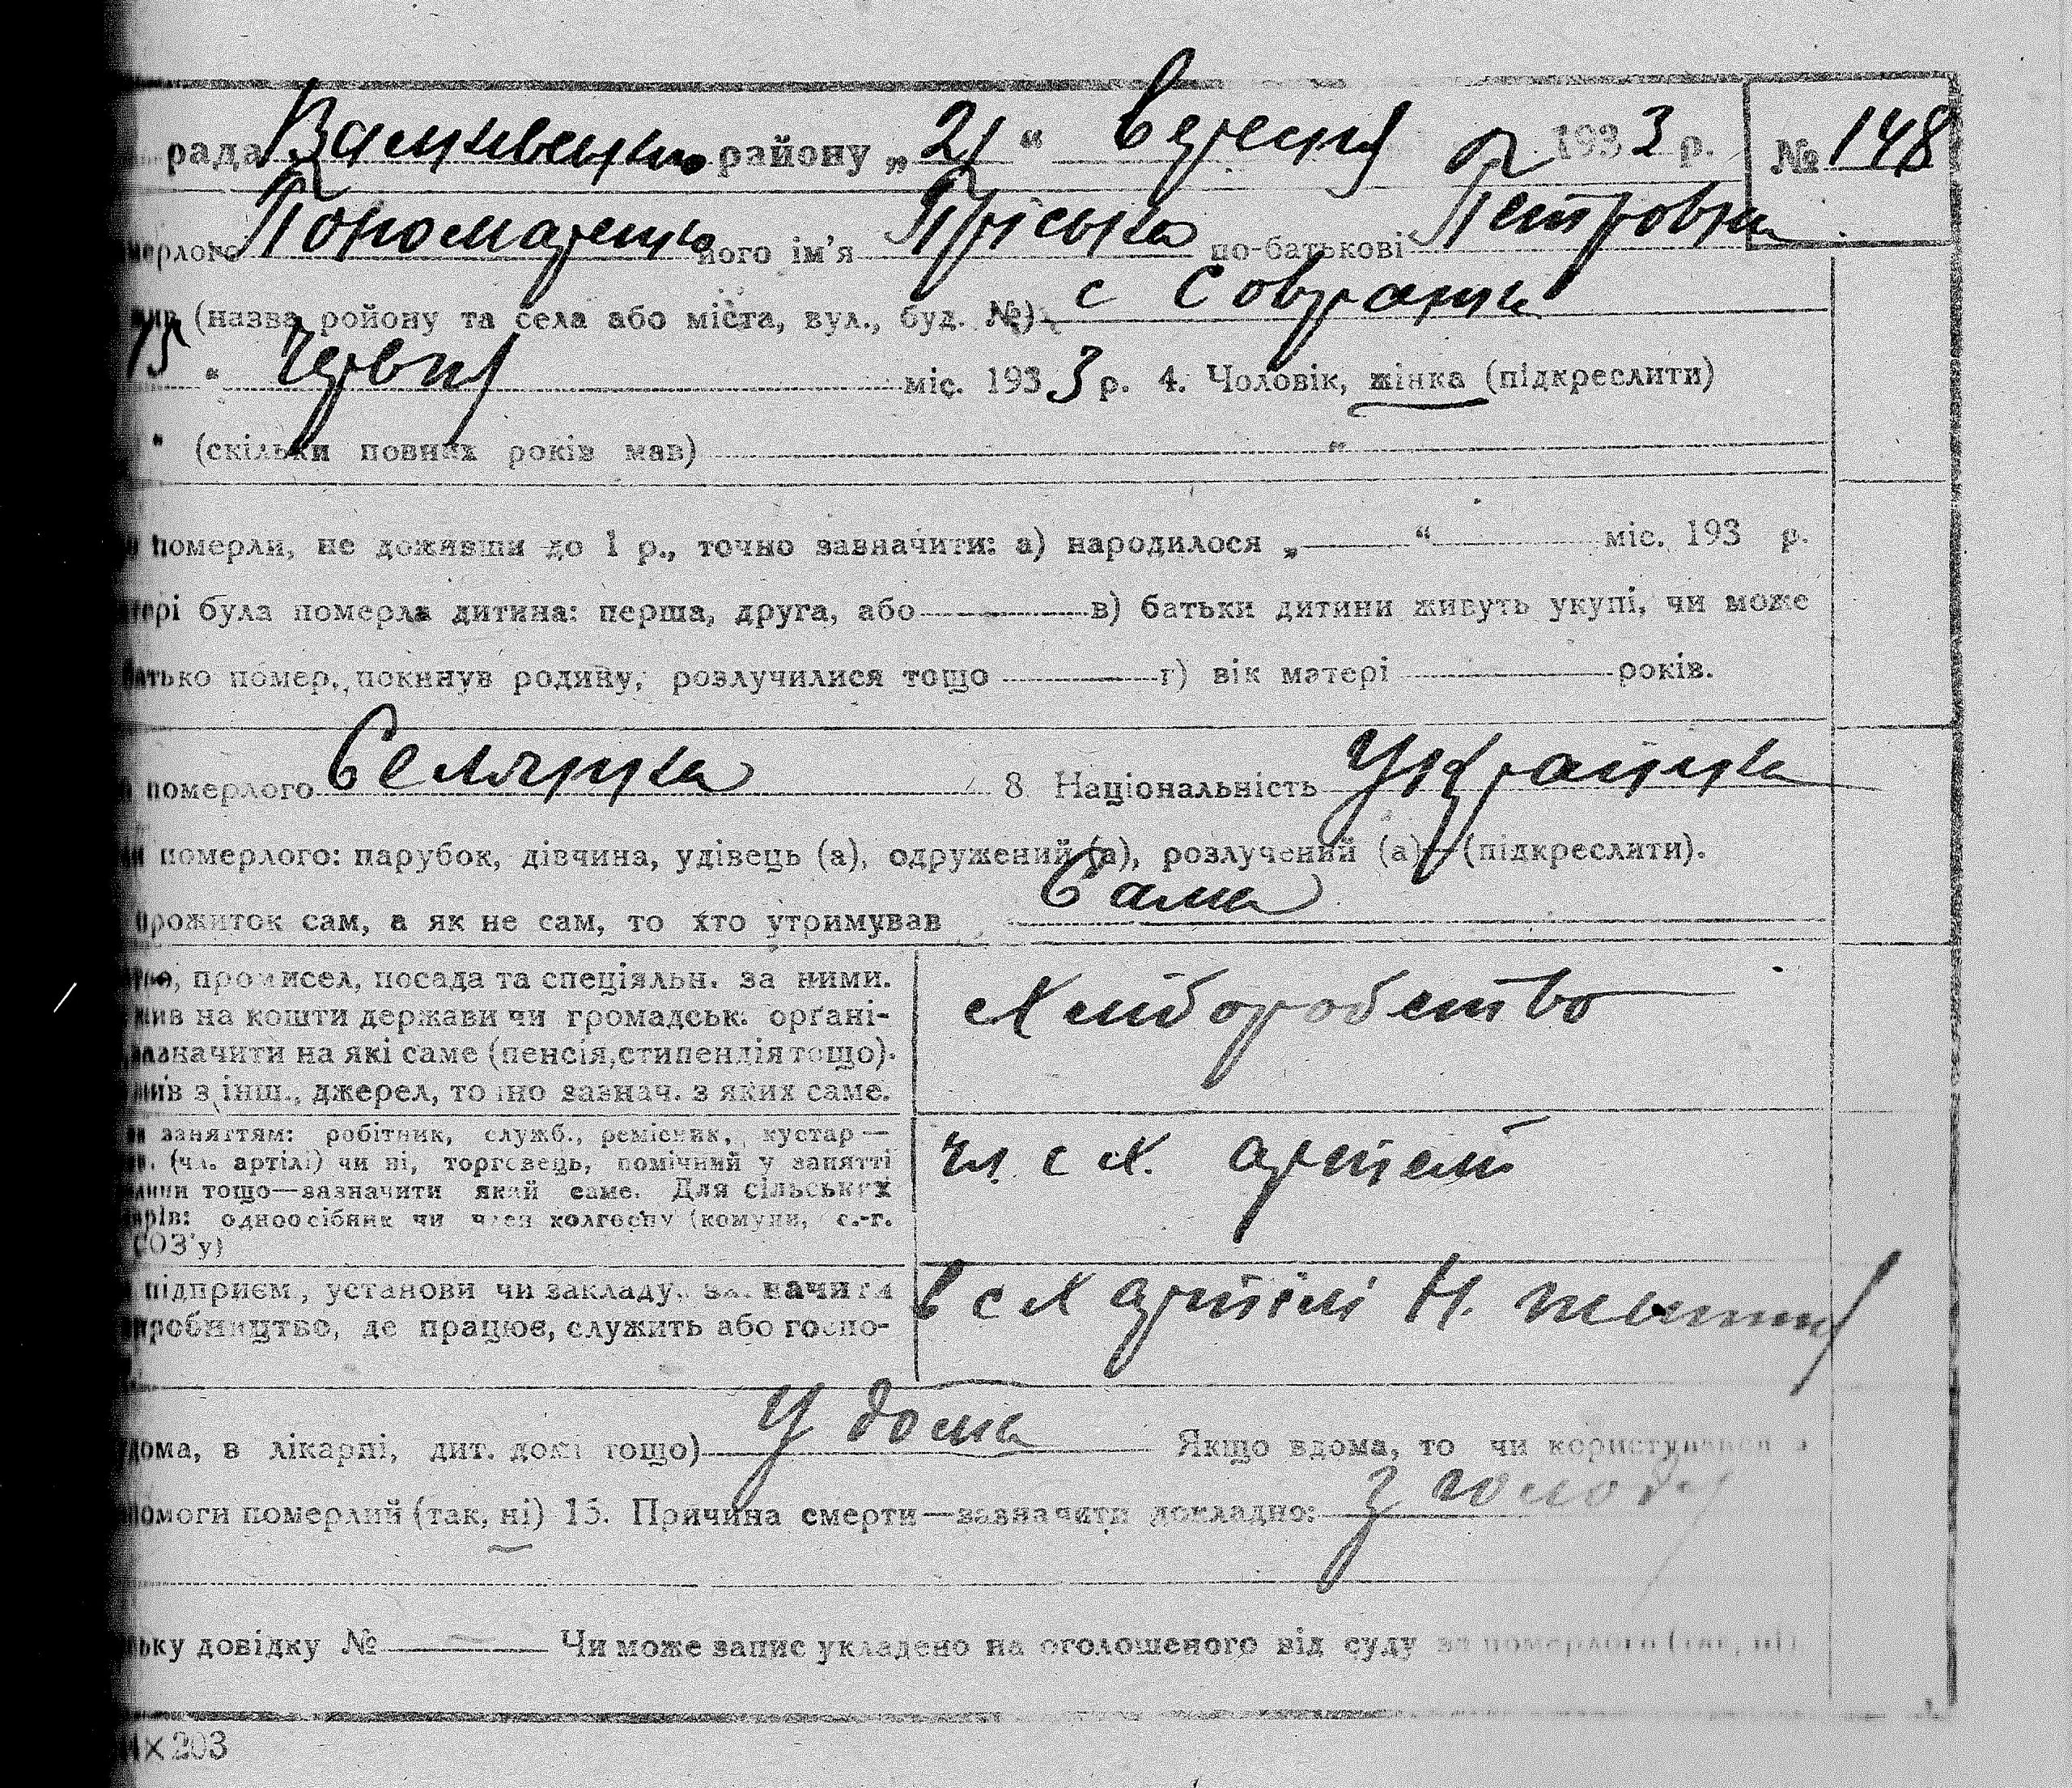 рада Вамківським району „ 21 “ вересня 1933 р. № 148
мерлого Пономаренко його ім'я Пріська по-батькові Петровна
жив (назва ройону та села або міста, вул., буд. №) с Совранка
15 “ червня міс. 1933 р. 4. Чоловік, жінка (підкреслити)
“ (скільки повних років мав) “
померли, не доживши до 1 р., точно зазначити: а) народилося „ “ міс. 193 р.
тері була померла дитина: перша, друга, або в) батьки дитини живуть укупі, чи може
батько помер, покинув родину, розлучилися тощо г) вік матері років.
померлого Селянка 8 Національність Українка
померлого: парубок, дівчина, удівець (а), одружений (а), розлучений (а)—(підкреслити).
прожиток сам, а як не сам, то хто утримував Сама
промисел, посада та спеціяльн. за ними.
жив на кошти держави чи громадськ. орґані-
зазначити на які саме (пенсія, стипендія тощо).
жив з інш., джерел, точно зазнач. з яких саме.
Хліборобство
заняттям: робітник, служб., ремісник, кустар—
(чл. артілі) чи ні, торговець, помічний у занятті
тощо—зазначити який саме. Для сільських
одноосібник чи член колгоспу (комуни, с.-г.
СОЗ'у)
чл. с х. артелі
підприєм., установи чи закладу, зазначити
виробництво, де працює, служить або госпо-
в с х артілі Н. життя
вдома, в лікарні, дит. домі тощо) У дома Якщо вдома, то чи користувався
допомоги померлий (так, ні) 15. Причина смерти—зазначити докладно: З голоду
довідку № Чи може запис укладено на оголошеного від суду за померлого (так, ні)
×203